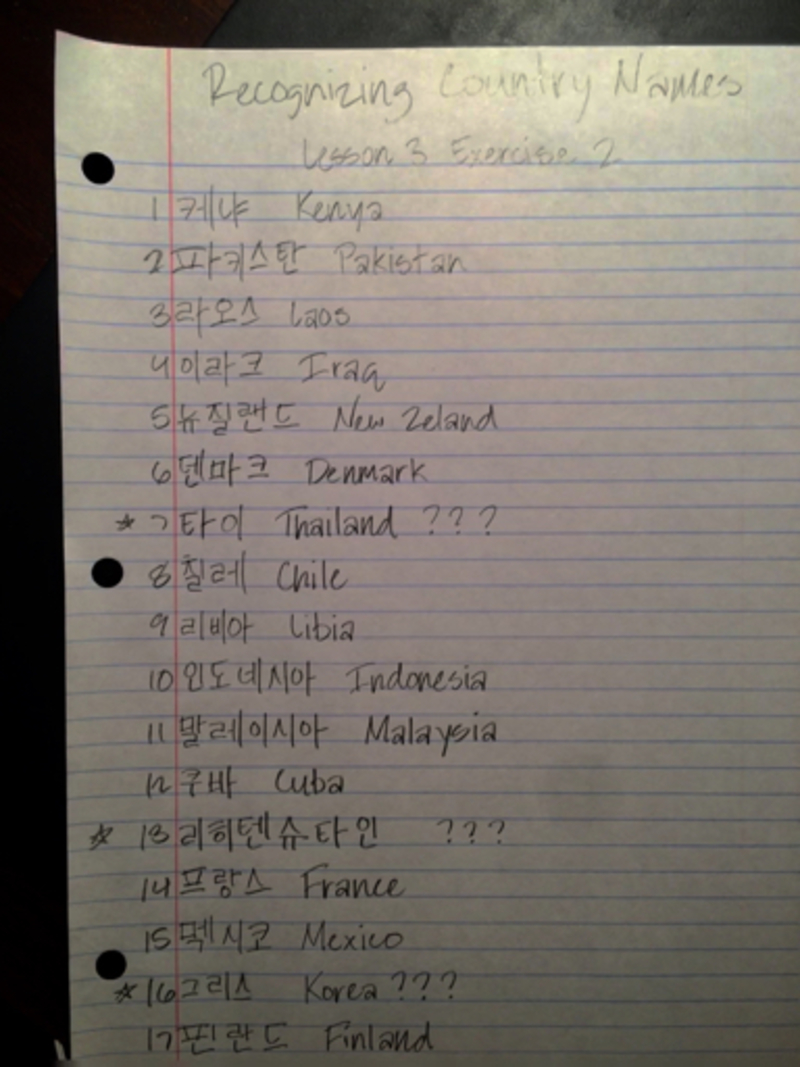 Recognizing Country Names
Lesson 3 Exercise 2
1 케냐 Kenya
2 파키스탄 Pakistan
3 라오스 Laos
4 이라크 Iraq
5 뉴질랜드 New Zeland
6 덴마크 Denmark
* 7 타이 Thailand ???
8 칠레 Chile
9 리비아 Libia
10 인도네시아 Indonesia
11 말레이시아 Malaysia
12 쿠바 Cuba
* 13 리히텐슈타인 ???
14 프랑스 France
15 멕시코 Mexico
* 16 그리스 Korea ???
17 핀란드 Finland